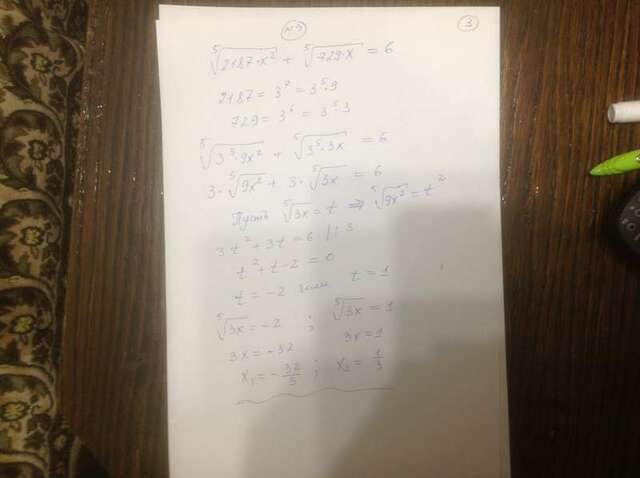 №9 3
⁵√(2187·x²) + ⁵√(729·x) = 6
2187 = 3⁷ = 3⁵·9
729 = 3⁶ = 3⁵·3
⁵√(3⁵·9x²) + ⁵√(3⁵·3x) = 6
3·⁵√(9x²) + 3·⁵√(3x) = 6
Пусть ⁵√(3x) = t ⇒ ⁵√(9x²) = t²
3t² + 3t = 6 /:3
t² + t - 2 = 0
t = -2 или t = 1
⁵√(3x) = -2 ; ⁵√(3x) = 1
3x = -32 3x = 1
x₁ = -32/3 ; x₂ = 1/3